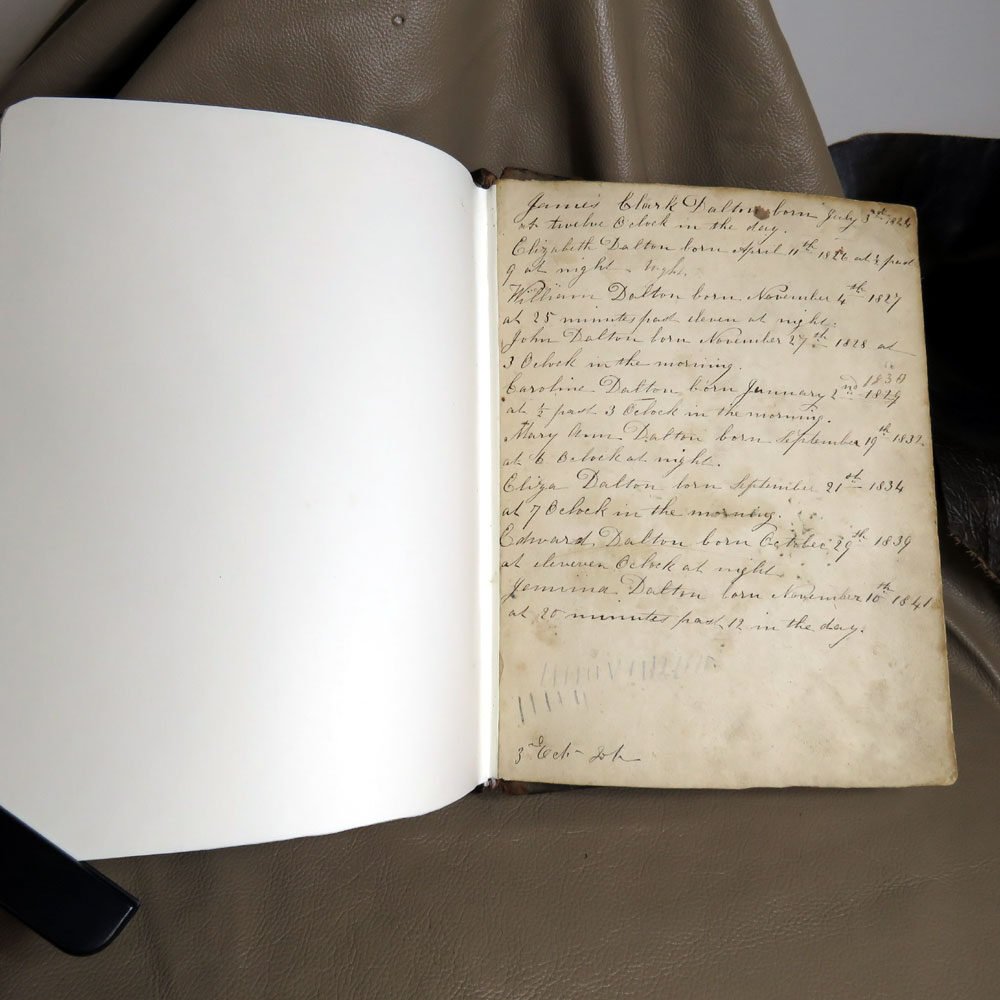 James Clark Dalton born July 3rd 1824
at twelve Oclock in the day.
Elizabeth Dalton born April 11th 1826 at ½ past
9 at night
William Dalton born November 4th 1827
at 25 minutes past eleven at night.
John Dalton born November 27th 1828 at
3 Oclock in the morning.
Caroline Dalton born January 2nd 1829 1830
at ½ past 3 Oclock in the morning.
Mary Ann Dalton born September 19th 1832
at 6 Oclock at night.
Eliza Dalton born September 21st 1834
at 7 Oclock in the morning.
Edward Dalton born October 29th 1839
at eleveven Oclock at night
Jemima Dalton born November 10th 1841
at 20 minutes past 12 in the day.
3rd Oct